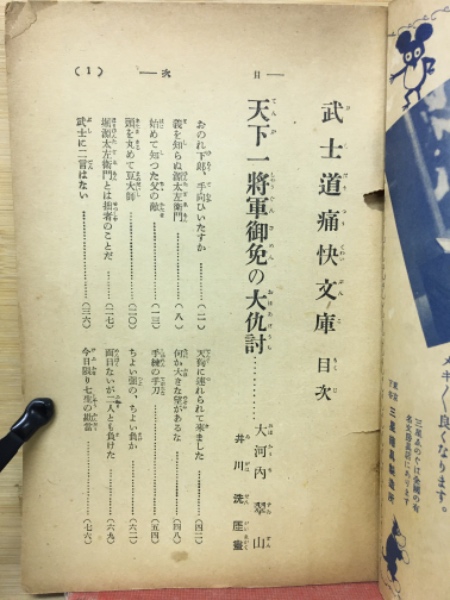 (1)
― 目 次 ―
武士道痛快文庫 目次
天下一將軍御免の大仇討…………
大河内翠山
井川洗厓畫
おのれ下郎、手向ひいたすか…………(二)
義を知らぬ源太左衞門…………(八)
始めて知つた父の敵…………(一三)
頭を丸めて豆大師…………(二〇)
堀源太左衞門とは拙者のことだ…………(二七)
武士に二言はない…………(三六)
天狗に連れられて來ました…………(四二)
何か大きな望があるな…………(四八)
手練の手刀…………(五四)
ちよい強の、ちよい負か…………(六二)
面目ないが二人とも負けた…………(六九)
今日限り七生の勘當…………(七六)
メキ〳〵良くなります。